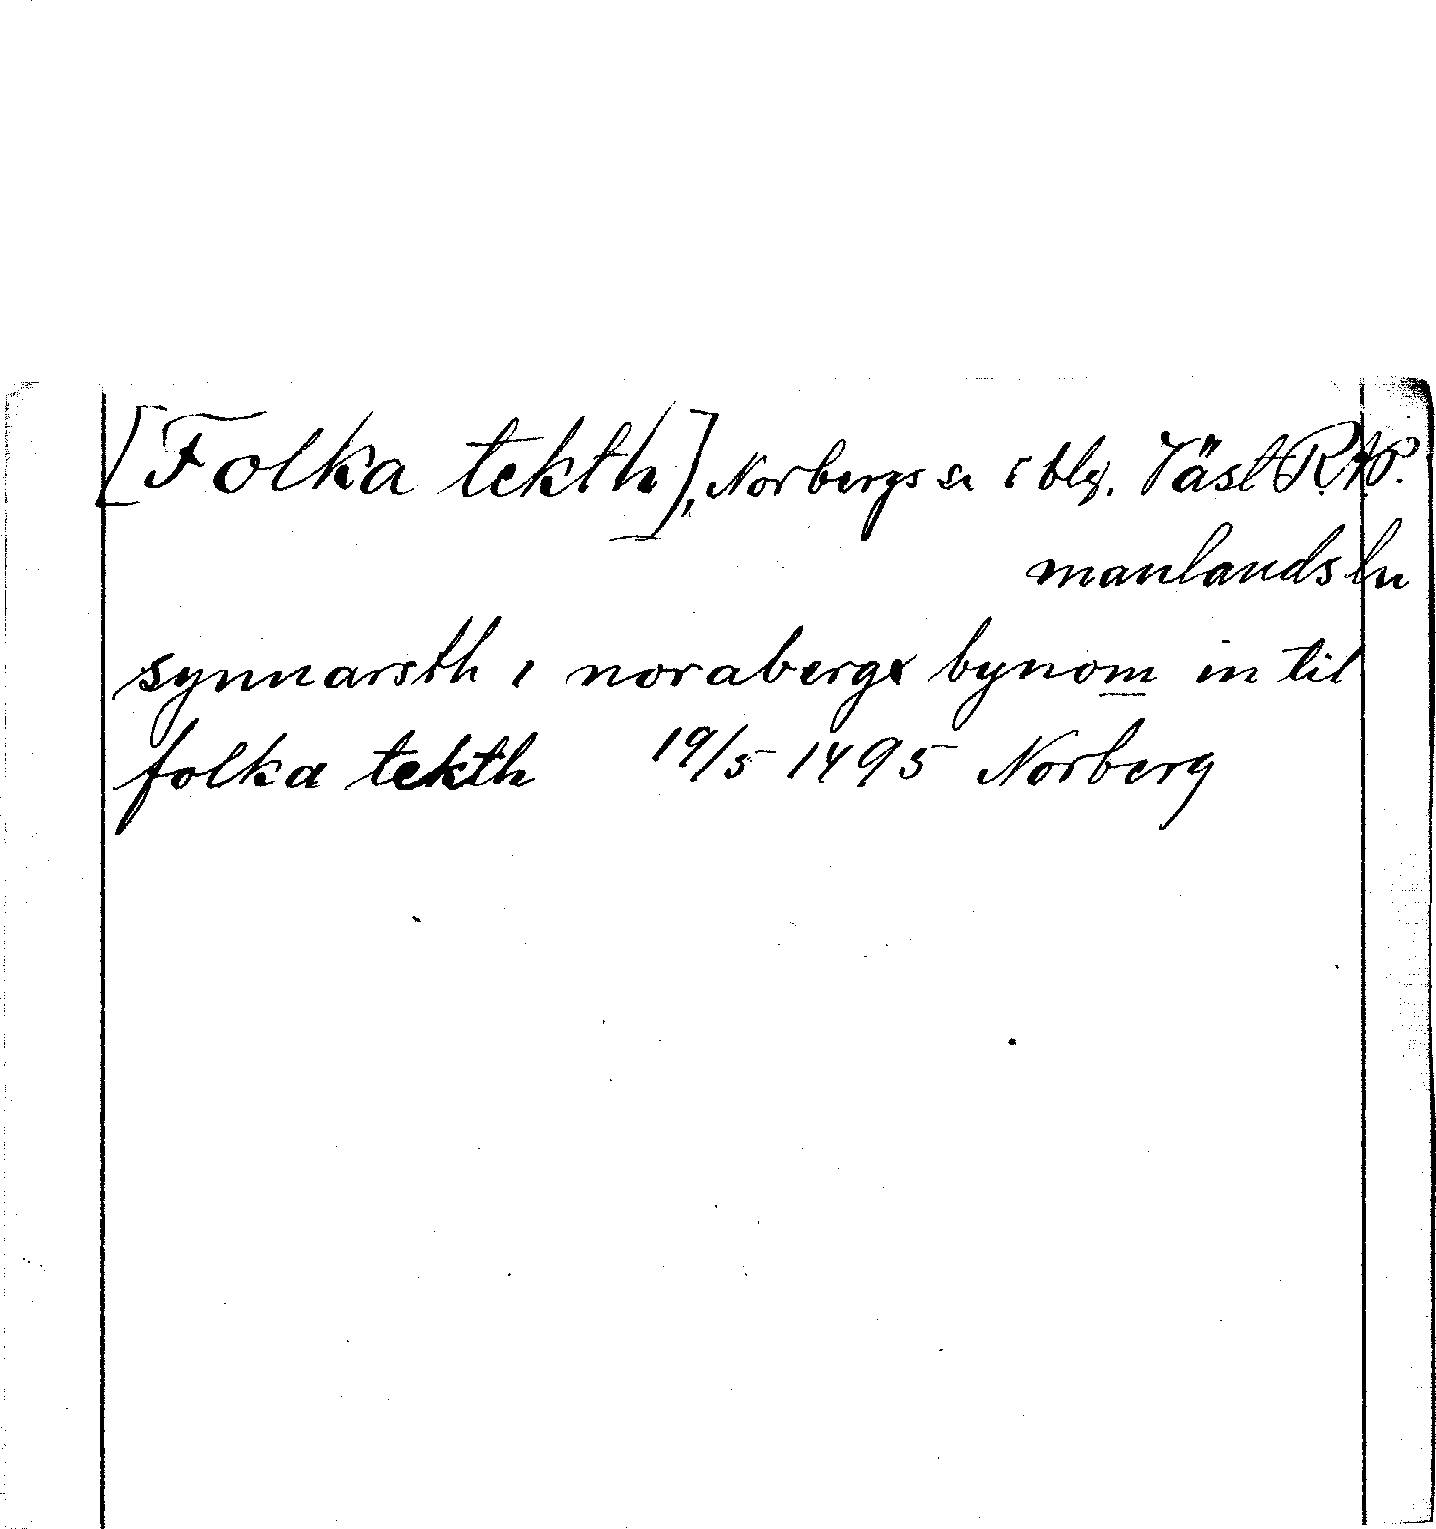 [Folka tekth], Norbergs sn o blg. Väst R.A.P.
manlands ln
synnarsth i norabergx bynom in til
folka tekth 19/5 1495 Norberg